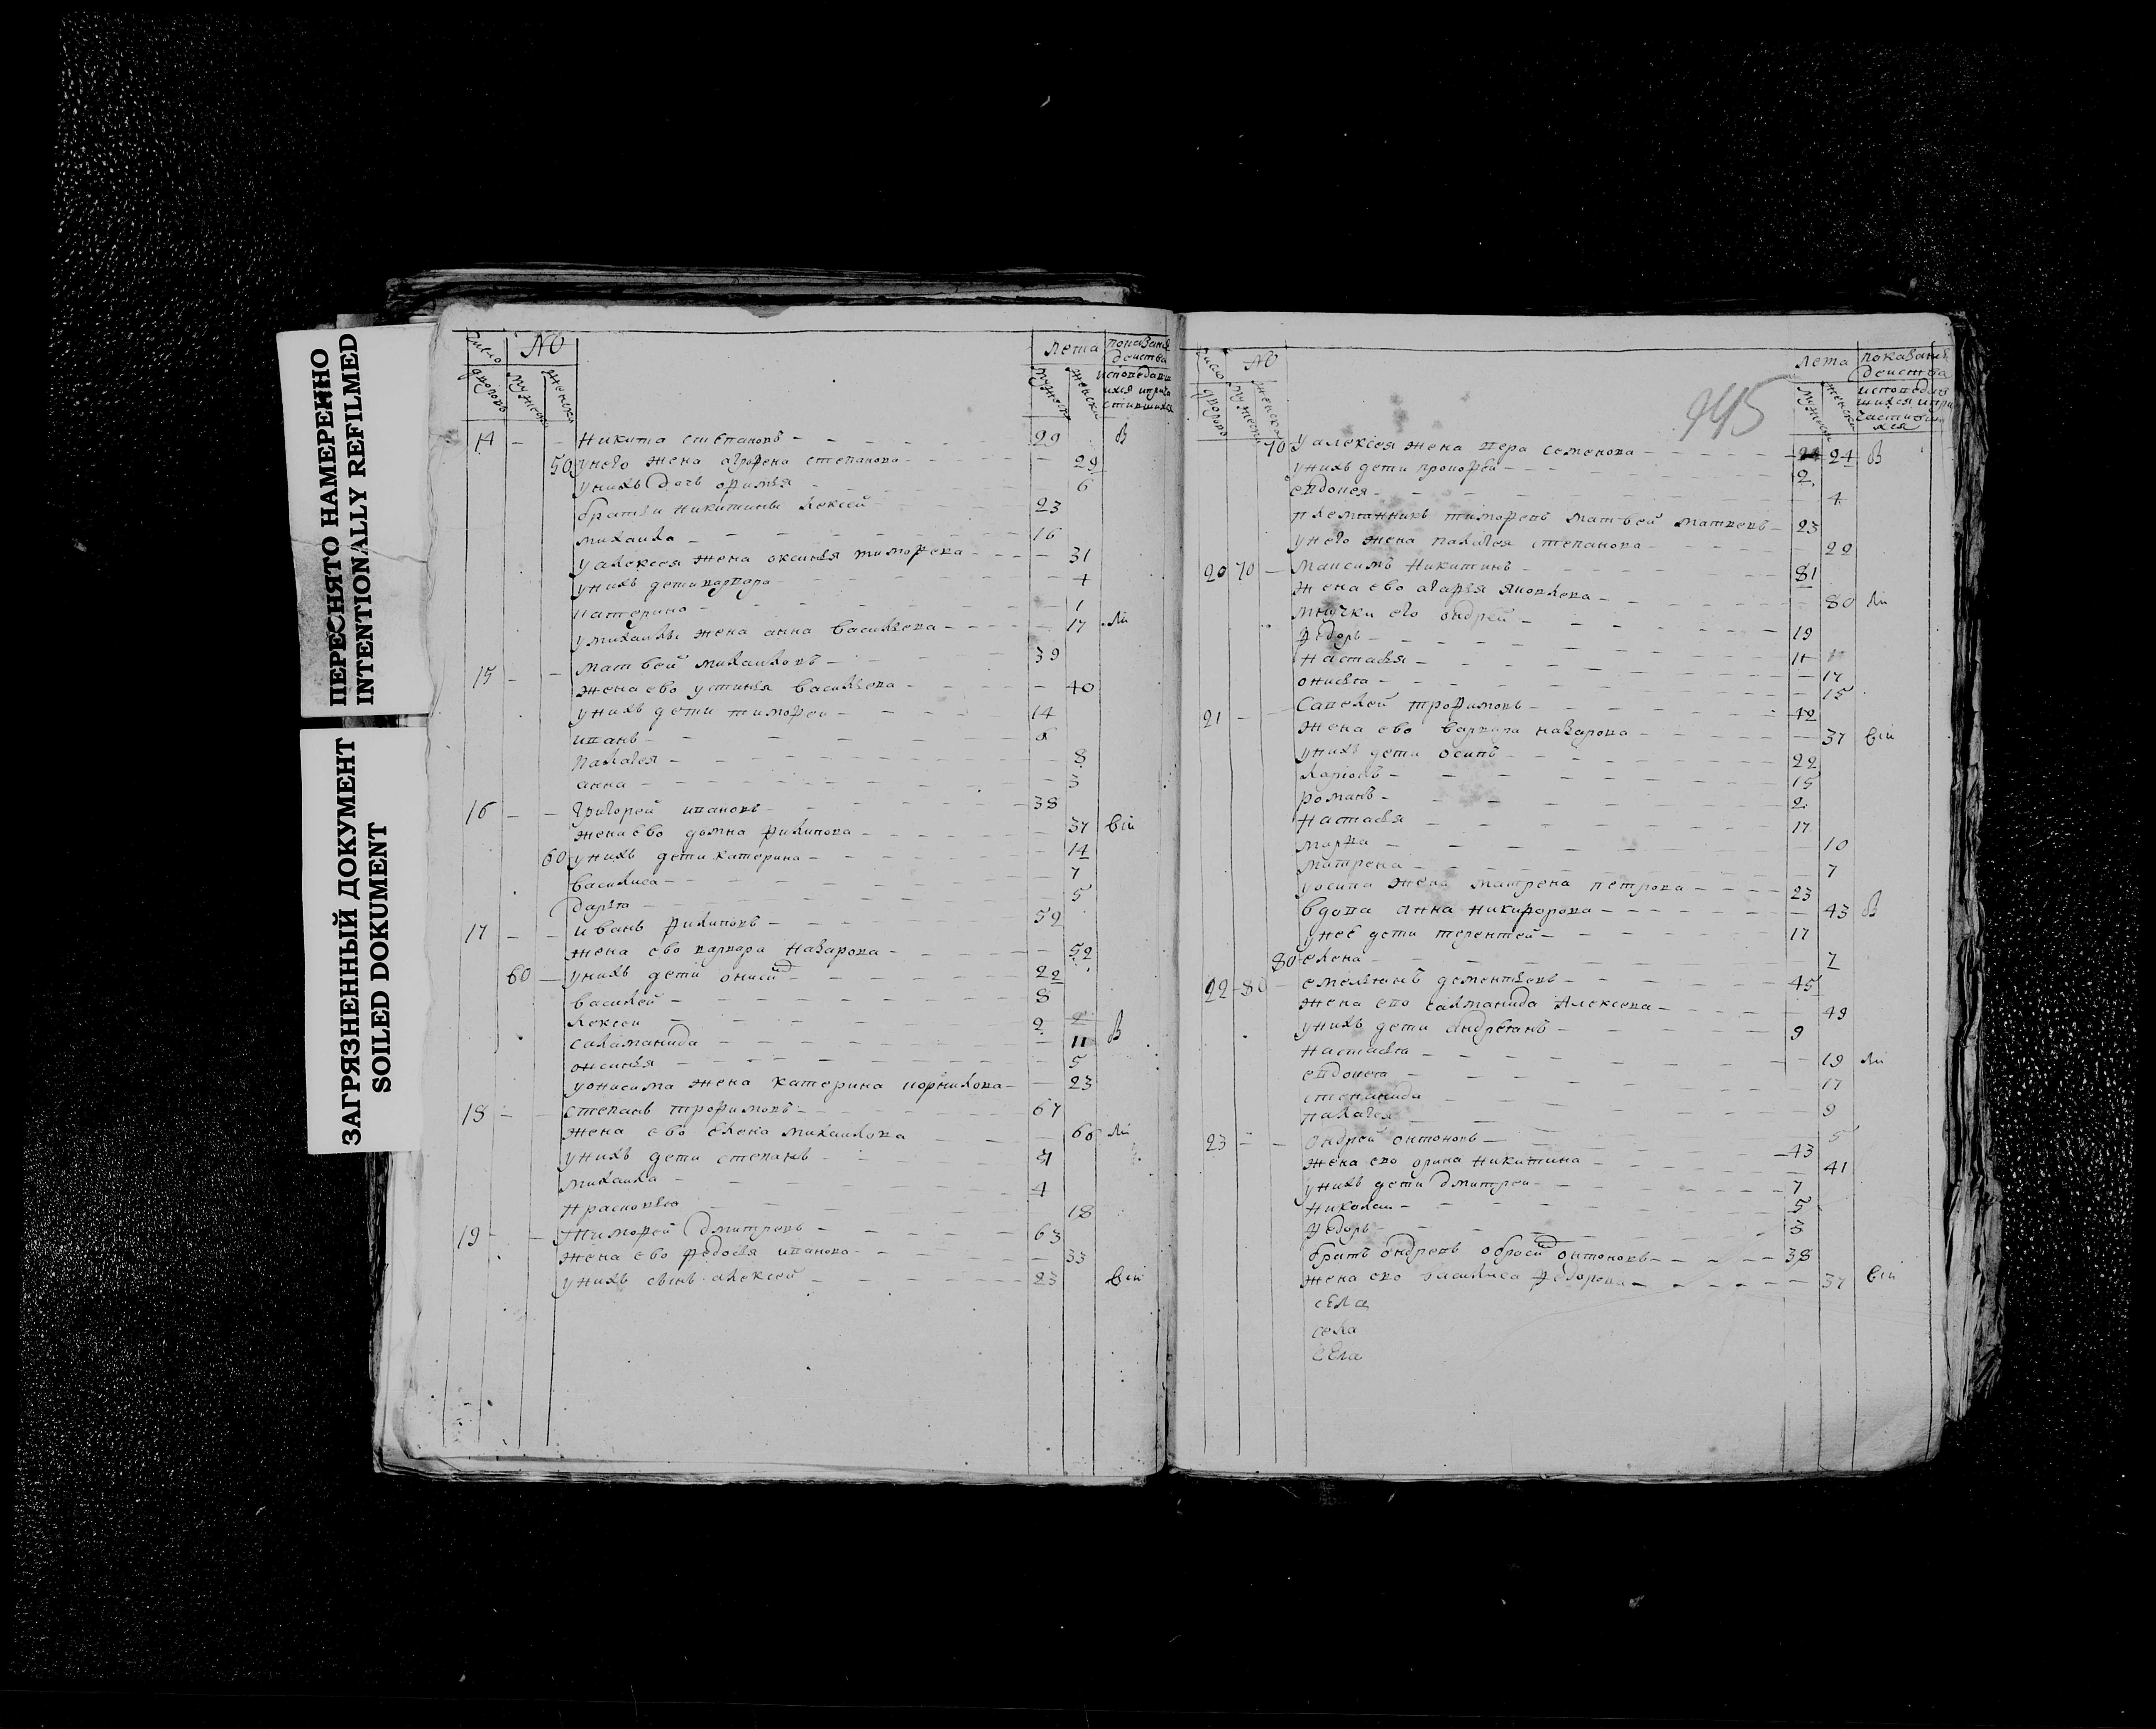 ПЕРЕСНЯТО НАМЕРЕННО
INTENTIONALLY REFILMED
ЗАГРЯЗНЕННЫЙ ДОКУМЕНТ
SOILED DOKUMENT
число дворовъ
№
мужеск
женски
лета
мужеск
женски
14 никита степановъ 29 В
50 унего жена агрофена степанова 29
унихъ дочь 6
братъи никитины лексей 23
михаила 16
уалексея жена оксинья тимофева 31
унихъ дети варвара 4
катерина 1
умихаилы жена анна васильева 17
15 матвей михаиловъ 39
жена ево устинья васильева 40
унихъ дети тимофеи 14
иванъ
палагея 8
анна 3
16 григорей ивановъ 38
жена ево домна филипова 37
60 унихъ дети катерина 14
василиса 7
дарья 5
17 иванъ филиповъ 52
жена ево варвара назарова 52
60 унихъ дети онисим 22
василей 8
лексеи 2
саламанида 11 В
оксинья 5
уонисима жена катерина корнилова 23
18 степанъ трофимовъ 67
жена ево елена михаилова 66
унихъ дети степанъ
михаила 4
прасковья 18
19 тимофей дмитревъ 63
жена ево федосья иванова 33
унихъ сынъ алексей 23
945
число дворовъ
№
мужески
женски
лета
мужески
женски
показания
действа
70 уалексея жена вера семенова 24 В
унихъ дети прокофеи 2
евдокея 4
племянникъ тимофевъ матвей матвевъ 23
унего жена палагея степанова 22
20 70 максимъ никитинъ 81
жена ево агафья яковлева 80
внучки его андрей 19
федоръ 11
настасья 17
онисья 15
21 савелей трофимовъ 42
жена ево варвара назарова 37
унихъ дети осипъ 22
ларионъ 15
романъ 2
настасья 17
марфа 10
матрена 7
уосипа жена матрена петрова 23
вдова анна никифорова 43 В
унеё дети терентей 17
80 елена 7
22 80 емельянъ дементьевъ 45
жена ево салманида Алексева 49
унихъ дети андреянъ 9
настасья 19
евдокея 17
степанида 9
палагея 5
23 андрей антоновъ 43
жена ево орина никитина 41
унихъ дети дмитреи 7
николаи 5
федоръ 3
братъ андревъ антоновъ 38
жена ево василиса федорова 37
села
села
села